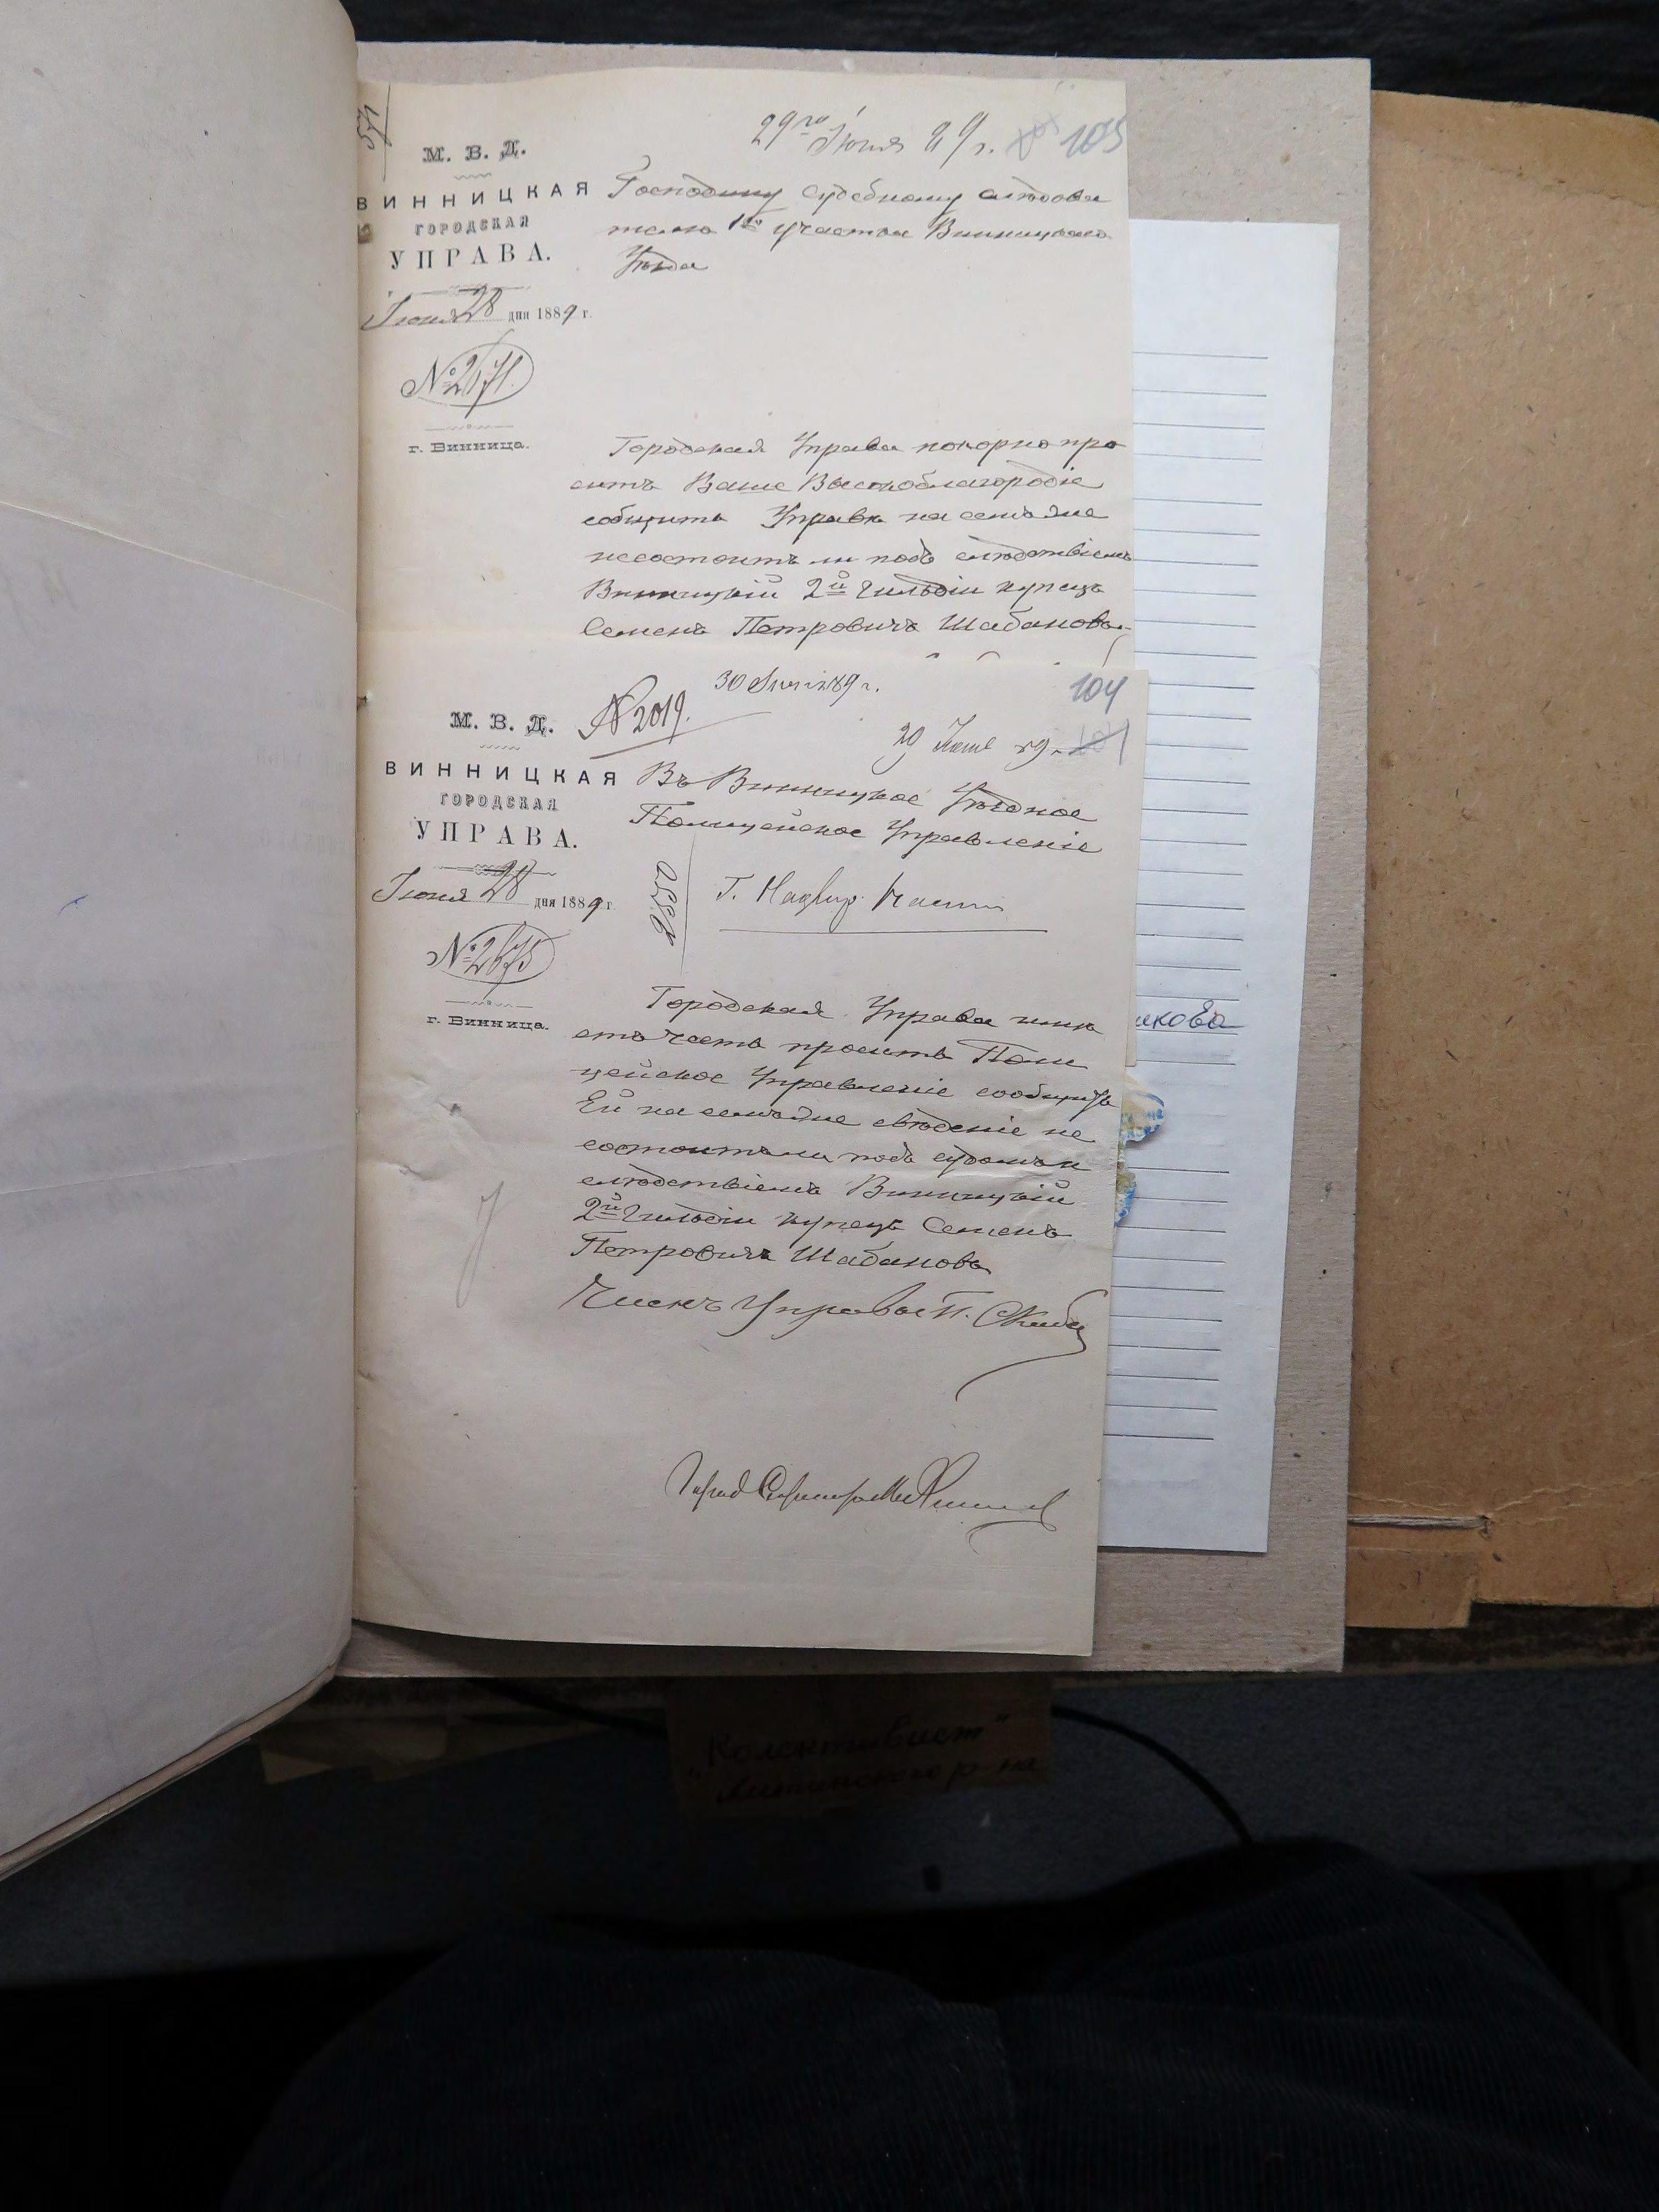 29го Іюня 89 г. 105
М. В. Д.
ВИННИЦКАЯ
ГОРОДСКАЯ
УПРАВА.
Іюня 28 дня 1889 г.
№ 2671.
г. Винница.
Господину Судебному Слѣдова
телю 1го участка Винницкаго
Уѣзда
Городская Управа покорно про
ситъ Ваше Высокоблагородіе
сообщить Управѣ на семъ же
несостоитъ ли подъ слѣдствіемъ
Винницкій 2й Гильдіи купецъ
Семенъ Петровичъ Шабановъ
30 89 г.
104
№ 2019.
29 Іюня 89 г.
М. В. Д.
ВИННИЦКАЯ
ГОРОДСКАЯ
УПРАВА.
Іюня 28 дня 1889 г
№ 2675
г. Винница.
Въ Винницкое Уѣздное
Полицейское Управленіе
Г.
Городская Управа имѣ
етъ честь просить Поли
цейское Управленіе сообщить
Ей на семъ же свѣденіе не
состоитъ ли подъ судомъ и
слѣдствіемъ Винницкій
2й Гильдіи купецъ Семенъ
Петровичъ Шабановъ
Членъ Управы П.
икова
Колективист"
Литинского р-на